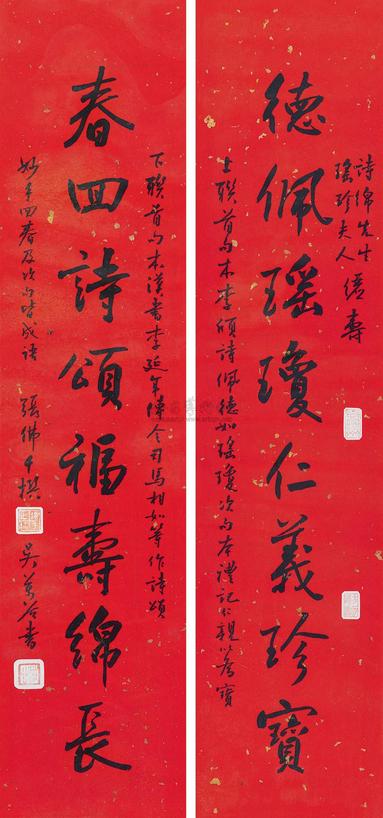 詩綿先生
瑤珍夫人 儷壽
德佩瑤瓊仁義珍寶
上聯首句本李頎詩佩德如瑤瓊次句本禮記仁親以為寶
下聯首句本漢書李延年傳令司馬相如等作詩頌
春回詩頌福壽綿長
妙手回春及次句皆成語 張佛千撰 吳萬谷書